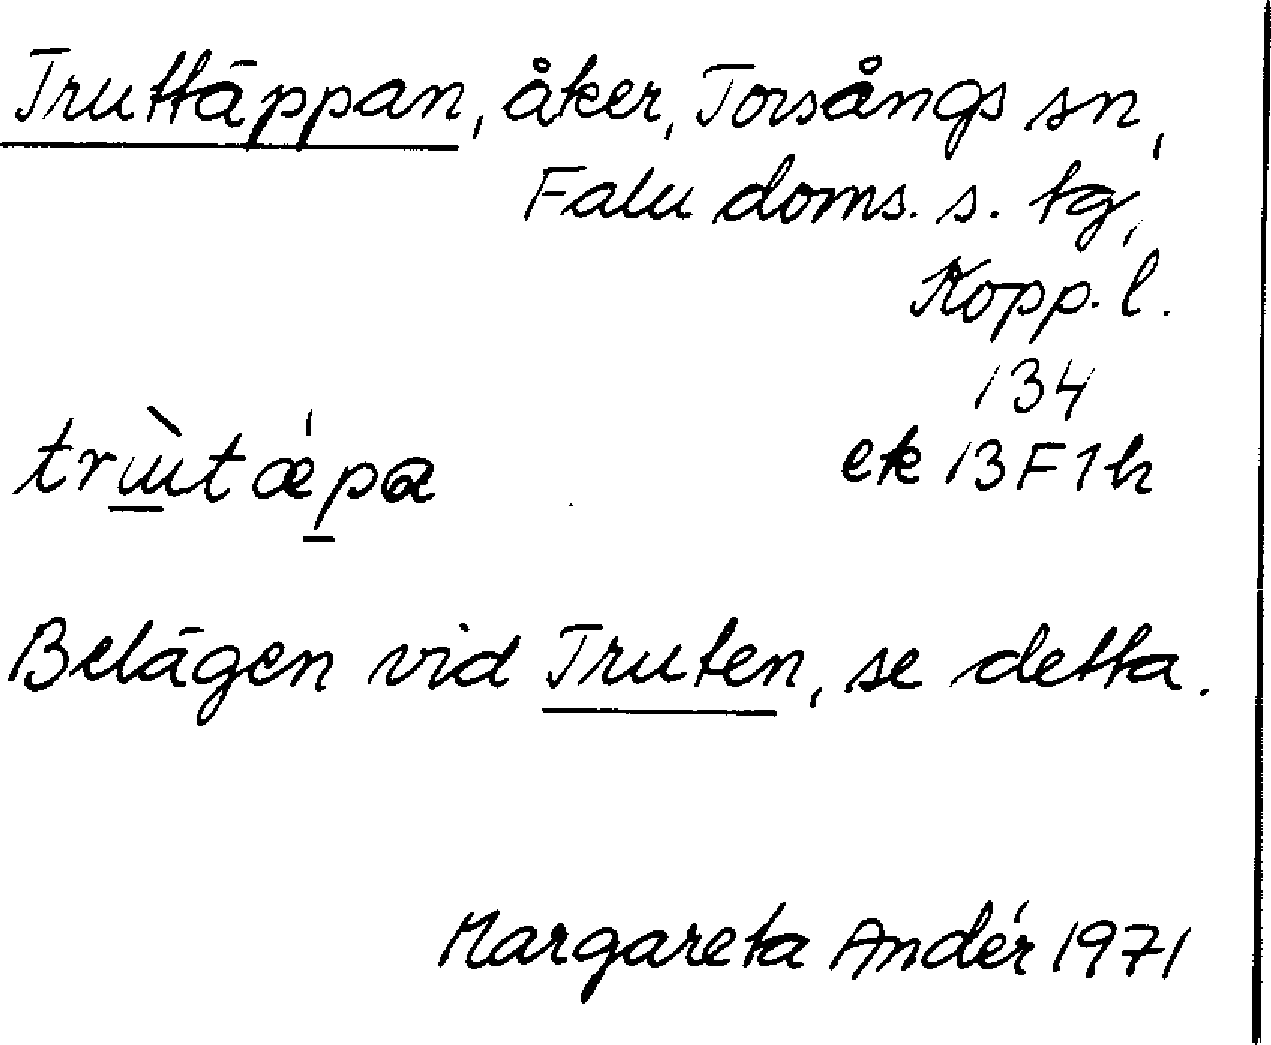 Truttäppan, åker, Torsångs sn,
Falu doms. s. tg,
Kopp. l.
134
trɯ̀tǽpa
ek 13F1h
Belägen vid Truten, se detta.
Margareta Andér 1971